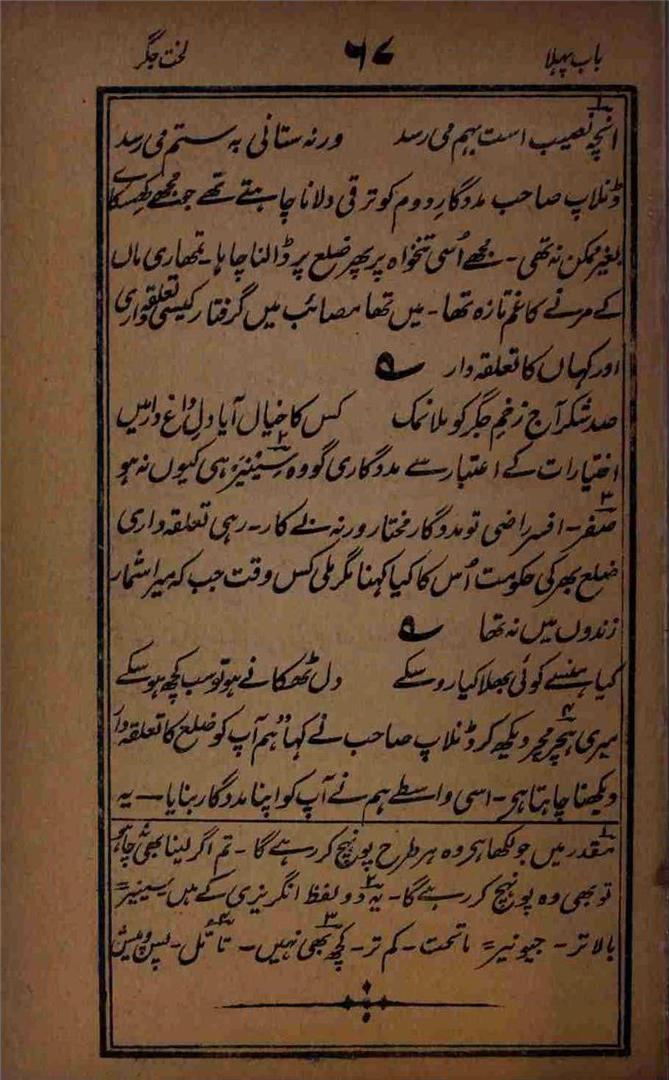 باب پہلا ۶۷ لخت جگر
انچہ نصیب است بہم می رسد ورنہ ستانی بہ ستم می رسد
ڈنلاپ صاحب مددگارِ دوم کو ترقی دلانا چاہتے تھے جو مجھے کھسکائے
بغیر ممکن نہ تھی۔ مجھے اُسی تنخواہ پر پھر ضلع پر ڈالنا چاہا۔ تمھاری ماں
کے مرنے کا غم تازہ تھا۔ میں تھا مصائب میں گرفتار کیسی تعلقہ داری
اور کہاں کا تعلقہ دار ؎
صد شکر آج زخمِ جگر کو ملا نمک کس کا خیال آیا دلِ داغ دار میں
اختیارات کے اعتبار سے مددگاری گو وہ سینیر۲ ہی کیوں نہ ہو
صفر۳۔ افسر راضی تو مددگار مختار ورنہ بے کار۔ رہی تعلقہ داری
ضلع بھر کی حکومت اُس کا کیا کہنا مگر ملی کس وقت جب کہ میرا شمار
زندوں میں نہ تھا ؎
کیا ہنسے کوئی بھلا کیا رو سکے دل ٹھکانے ہو تو سب کچھ ہو سکے
میری ہچر مچر۴ دیکھ کر ڈنلاپ صاحب نے کہا "ہم آپ کو ضلع کا تعلقہ دار
دیکھنا چاہتا ہے۔ اسی واسطے ہم نے آپ کو اپنا مددگار بنایا — یہ
۱ مقدر میں جو لکھا ہے وہ ہر طرح پہونچ کر رہے گا۔ تم اگر لینا بھی نہ چاہو
تو بھی وہ پہونچ کر رہے گا۔ ۲ یہ دو لفظ انگریزی کے ہیں سینیر=
بالاتر۔ جیونیر= ماتحت۔ کم تر۔ ۳ کچھ بھی نہیں۔ ۴ تامل۔ پس و پیش